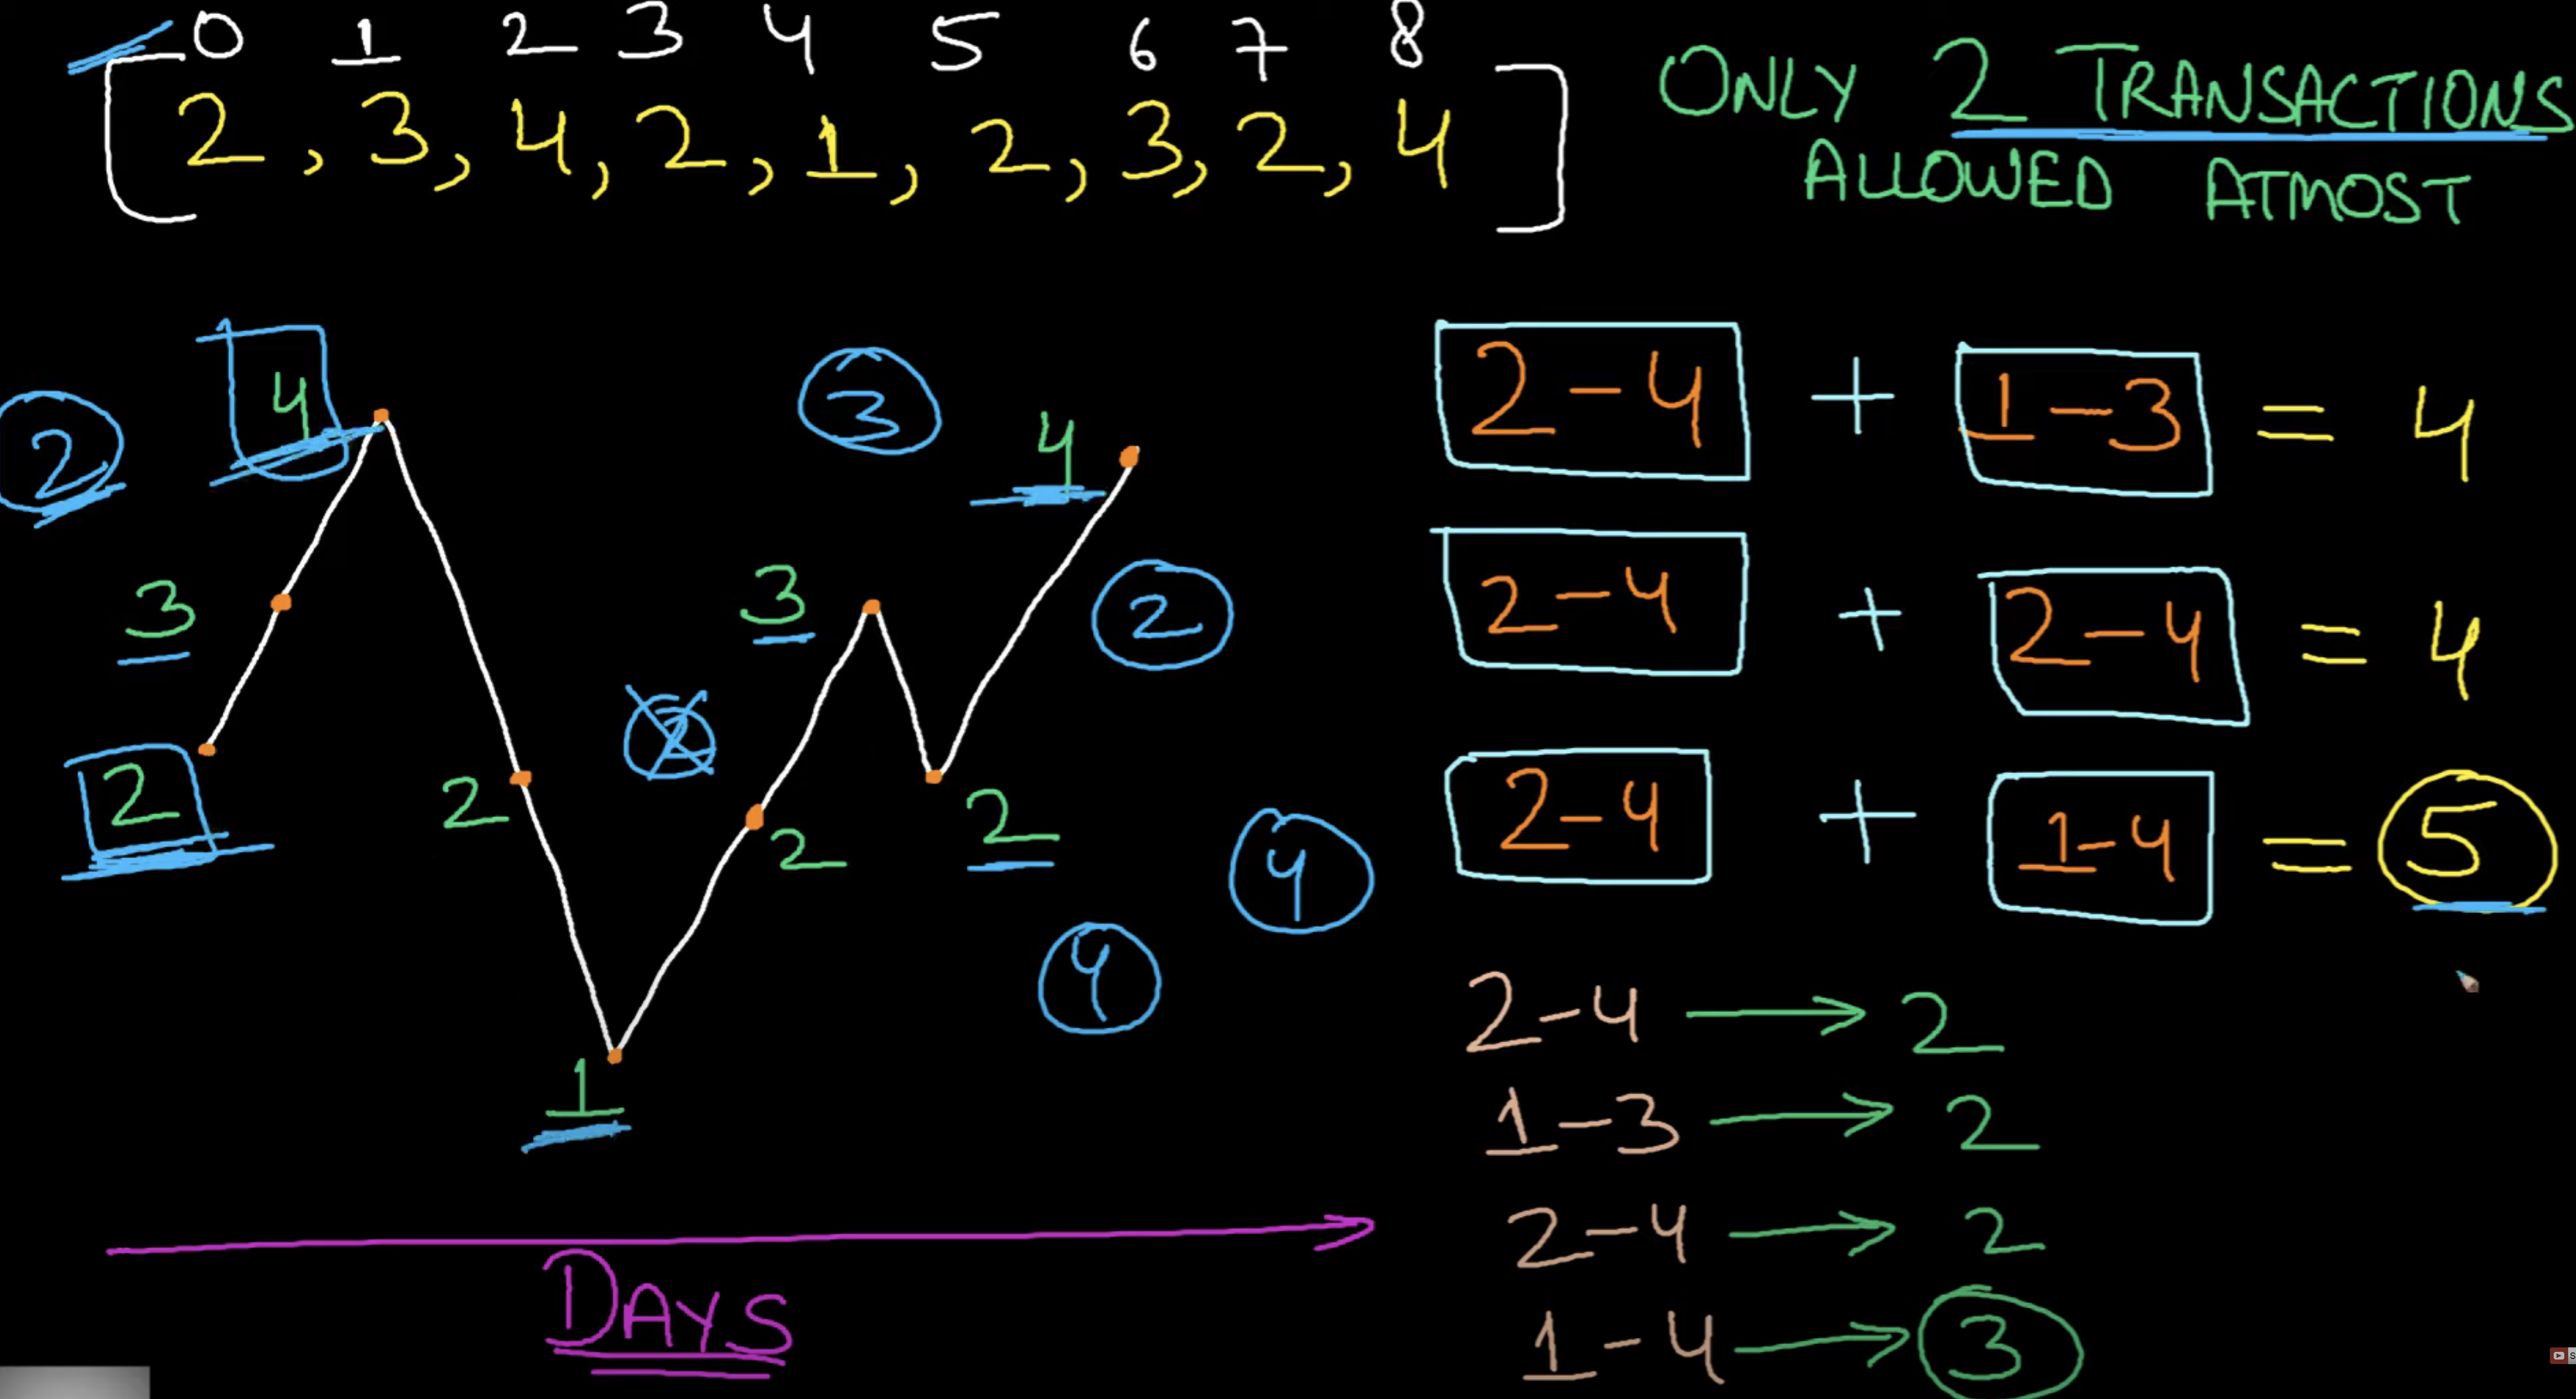 0 1 2 3 4 5 6 7 8
[2, 3, 4, 2, 1, 2, 3, 2, 4]
ONLY 2 TRANSACTIONS
ALLOWED ATMOST
4
2
3
3
2
2
1
2
3
2
4
2
4
4
DAYS
2-4 + 1-3 = 4
2-4 + 2-4 = 4
2-4 + 1-4 = 5
2-4 → 2
1-3 → 2
2-4 → 2
1-4 → 3